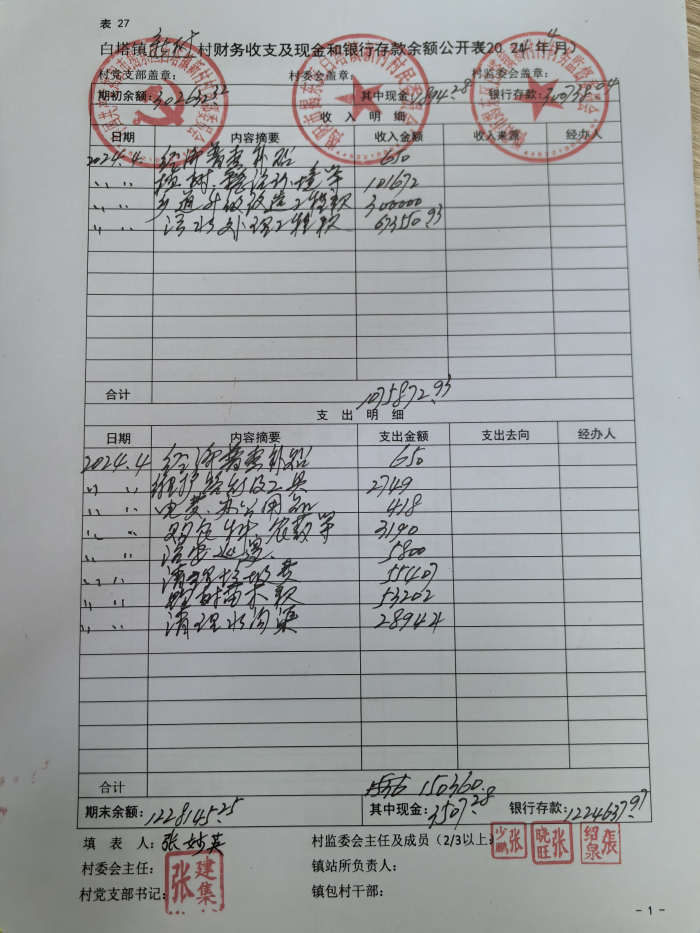 表 27
白塔镇新村村财务收支及现金和银行存款余额公开表2024年4月）
村党支部盖章： 村委会盖章： 村监委会盖章：
期初余额：302632.32 其中现金：1894.28 银行存款：300738.04
收 入 明 细
日期 内容摘要 收入金额 收入来源 经办人
2024.4 经济普查补贴 650
〃 〃 植树.整治环境等 101672
〃 〃 乡道升级改造工程款 300000
〃 〃 污水处理工程款 673550.93
合计 1075872.93
支 出 明 细
日期 内容摘要 支出金额 支出去向 经办人
2024.4 经济普查补贴 650
〃 〃 维护路灯及工具 2749
〃 〃 电费.办公用品 418
〃 〃 3190
〃 〃 治安巡逻 5800
〃 〃 清理垃圾费 55407
〃 〃 树苗木款 53202
〃 〃 清理水沟渠 28944
合计 150360.
期末余额：1228145.25 其中现金：3507.28 银行存款：1224637.97
填 表 人：张妙英 村监委会主任及成员（2/3以上）：
张少鹏 张晓旺 张绍泉
村委会主任： 镇站所负责人：
村党支部书记： 镇包村干部：
张建集
- 1 -